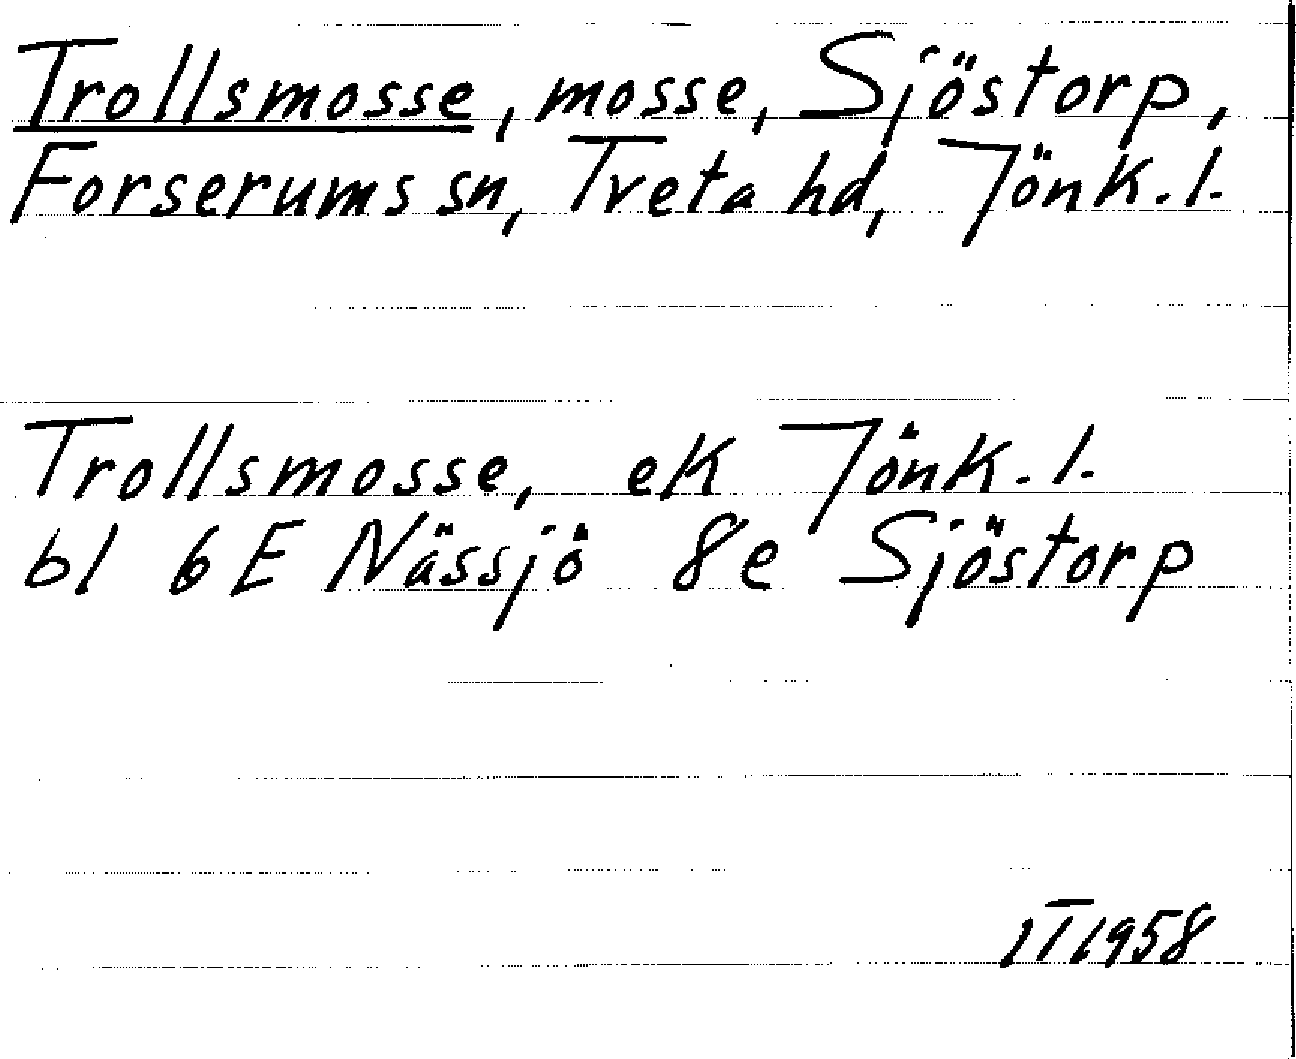 Trollsmosse, mosse, Sjöstorp,
Forserums sn, Tveta hd, Jönk.l.
Trollsmosse, ek Jönk.l.
bl 6E Nässjö 8e Sjöstorp
IT1958